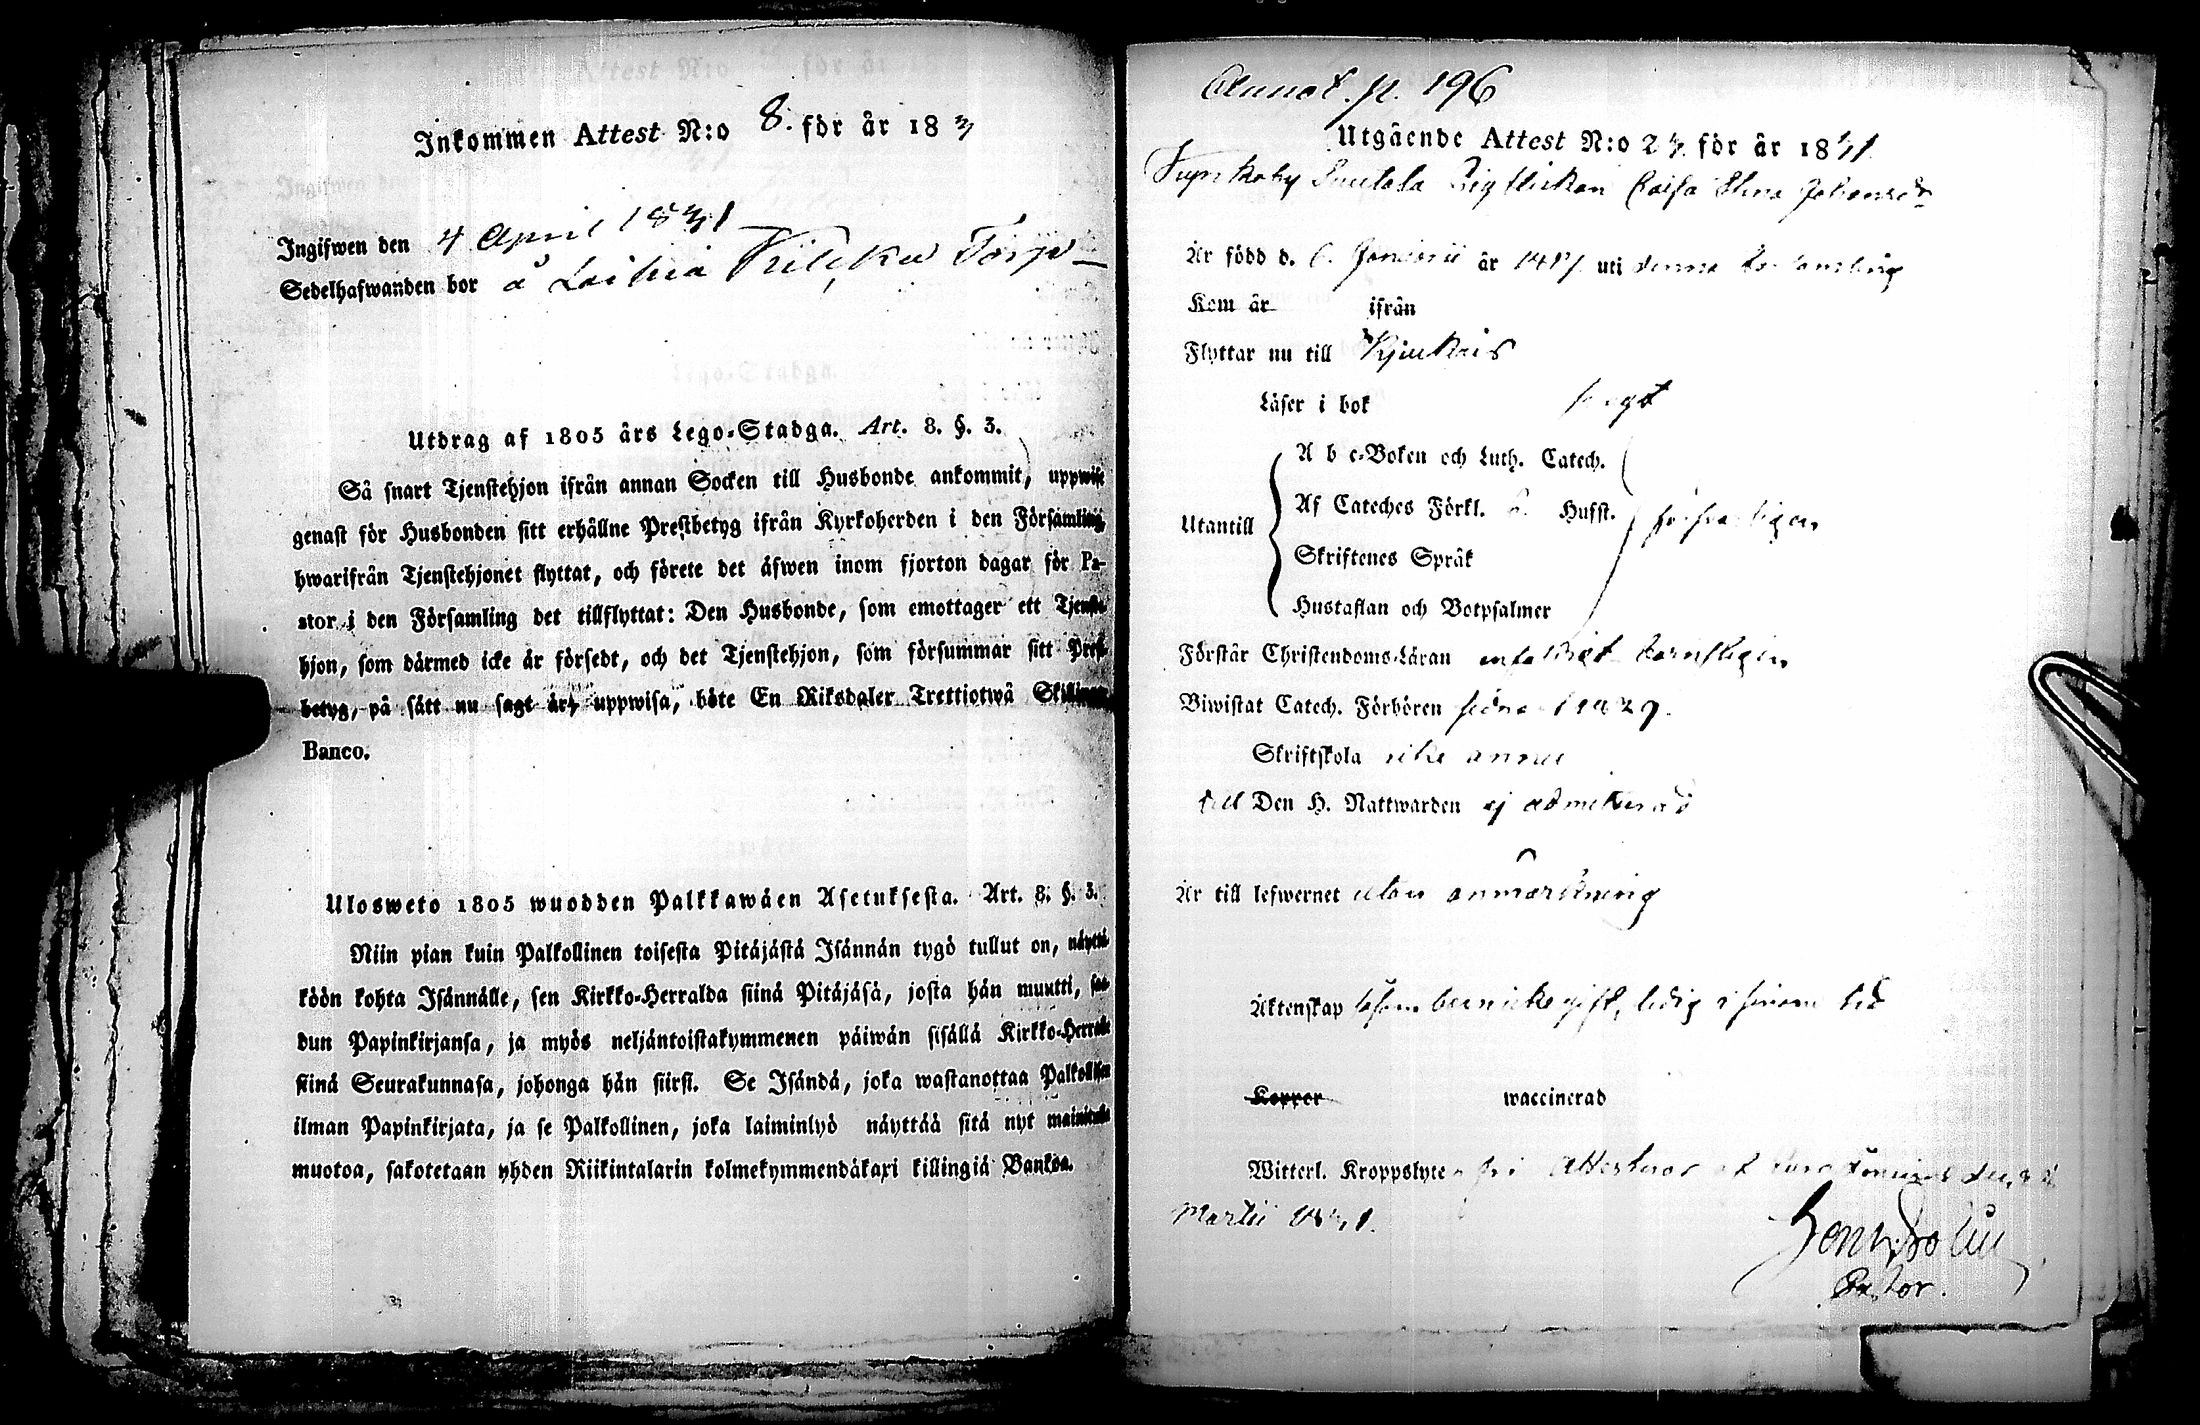 Inkommen Attest N:o 8. för år 18
Ingifwen den 4 April 1831
Sedelhafwanden bor å Laihia Torp
Utdrag af 1805 års Lego-Stadga. Art. 8. §. 3.
Så snart Tjenstehjon ifrån annan Socken till Husbonde ankommit, uppwise
genast för Husbonden sitt erhållne Prestbetyg ifrån Kyrkoherden i den Församling,
hwarifrån Tjenstehjonet flyttat, och förete det åfwen inom fjorton dagar för Pa-
stor i den Församling det tillflyttat: Den Husbonde, som emottager ett Tjenste-
hjon, som dårmed icke år försedt, och det Tjenstehjon, som försummar sitt Prest-
betyg, på sått nu sagt år, uppwisa, böte En Riksdaler Trettiotwå Skillingar
Banco.
Ulosweto 1805 wuodden Palkkawåen Asetuksesta. Art. 8. §. 3.
Niin pian kuin Palkollinen toisesta Pitåjåstå Isånnån tygö tullut on, nåyttå-
köön kohta Isånnålle, sen Kirkko-Herralda siinå Pitåjåså, josta hån muutti, saa-
dun Papinkirjansa, ja myös neljåntoistakymmenen påiwån sisållå Kirkko-Herralle
siinå Seurakunnasa, johonga hån siirsi. Se Isåndå, joka wastanottaa Palkollisen
ilman Papinkirjata, ja se Palkollinen, joka laiminlyö nåyttåå sitå nyt mainitulla
muotoa, sakotetaan yhden Riikintalarin kolmekymmendåkaxi killingiå Bankoa.
Annot. p. 196
Utgående Attest N:o 23. för år 1831.
Pigflickan Caisa Stina Johansdr
År född d. 6. Januarii år uti denna Församling
Kom år ifrån
Flyttar nu till Kjukais
Låser i bok
A b c-Boken och Luth. Catech.
Af Cateches Förkl. Husst.
Utantill förswarligen
Skriftenes Språk
Hustaflan och Botpsalmer
Förstår Christendoms-Låran enfaldigt
Biwistat Catech. Förhören sedna 1829.
Skriftskola icke ännu
till Den H. Nattwarden ej admitterad
År till lefwernet utan anmärkning
Åktenskap såsom barn icke gift, ledig i sinom tid
Koppor waccinerad
Witterl. Kroppslyte fri Attesteras
Martii 1831.
Pastor.